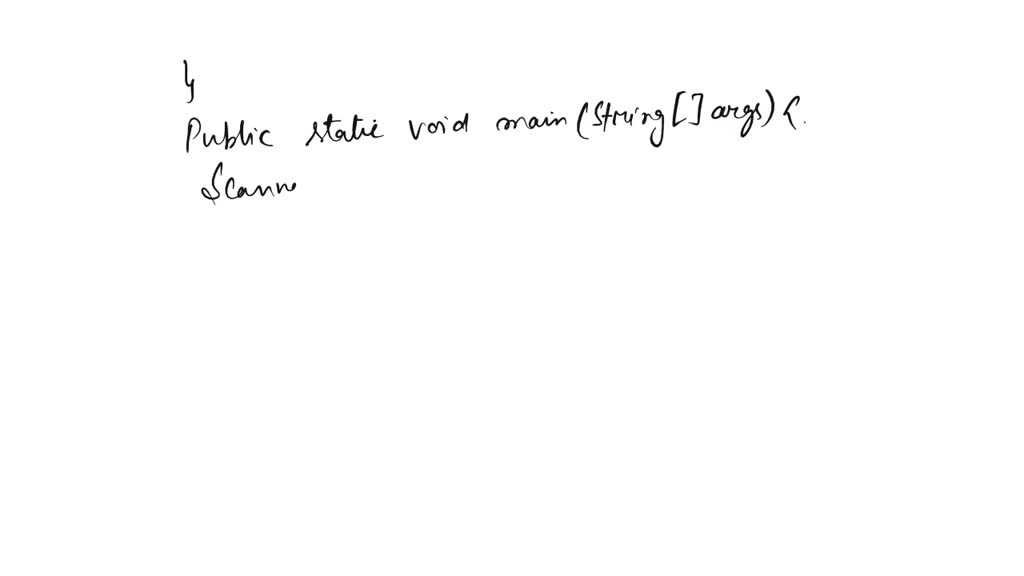 }
Public static void main (String[] args) {
Scann